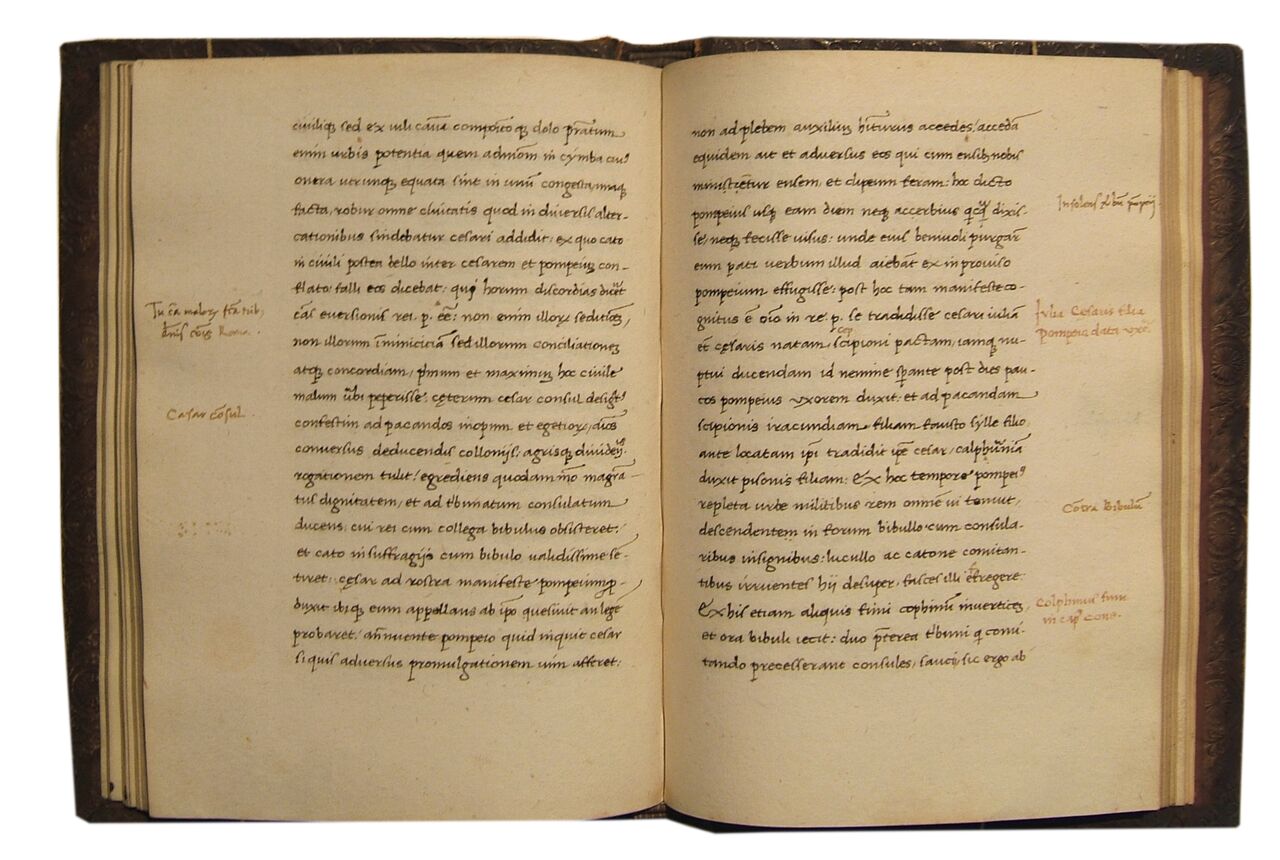 civiliq; sed ex vili causa compositoq; dolo pratum
enim urbis potentia quem admom in cymba cuiꝰ
onera utrunq; equata sint in unum congesta, unaq;
facta, robur omne civitatis quod in diversis alter-
cationibus sindebatur cesari addidit: ex quo cato
in civili postea bello inter cesarem et pompeium con-
flato: falli eos dicebat: qui horum discordias
cas eversionis rei. p. eē: non enim illorꝝ seditiones,
non illorum inimicicia sed illorum conciliationes
atq; concordiam, primum et maximum hoc civile
malum urbi peperisse. cęterum cesar consul
confestim ad pacandos inopum et egetiorꝝ aīos
conversus deducendis collonijs: agrisq; dividendis
rogationem tulit: egrediens quodam mō magra-
tus dignitatem, et ad tbunatum consulatum
ducens: cui rei cum collega bibulus obsisteret:
et cato in suffragijs cum bibulo validissime sē-
tiret: cęsar ad rostra manifeste pompeium p-
duxit ibiq; eum appellans ab ipo quesivit an legē
probaret: añuente pompeio quid inquit cesar
si quis adversus promulgationem vim affret:
Casar cōsul.
non ad plebem auxilium accedes: accedā
equidem ait et adversus eos qui cum ensib; nobis
ensem, et clipeum feram: hoc dicto
pompeius usq; eam diem neq; accerbius dixis-
se: neq; fecisse visus: unde eius benivoli purgar
eum pati verbum illud aiebāt ex inproviso
pompeium effugisse: post hoc tam manifeste co-
gnitus ē oīo in re. p. se tradidisse cesari iulia
et cęsaris natam, scipioni pactam, iamq; nu-
ptui ducendam id nemine spante post dies pau-
cos pompeius uxorem duxit: et ad pacandam
scipionis iracundiam filiam fausto sylle filio
ante locatam ipi tradidit ipe cesar, calphurniā
duxit pisonis filiam: Ex hoc tempore pompeiꝰ
repleta urbe militibus rem omnem vi tenuit,
descendentem in forum bibullo cum consula-
ribus insignibus: lucullo ac catone comitan-
tibus irruentes hij desuper, fasces illi effregere:
Ex his etiam aliquis fimi cophinum in vertices,
et ora bibuli iecit: duo pterea tbuni q comi-
tando precesserant consules, saucij, sic ergo ab
Iulia Cesaris filia
Pompeio data uxor
Cōtra Bibulum
Cophinus fimi
in cap cons.